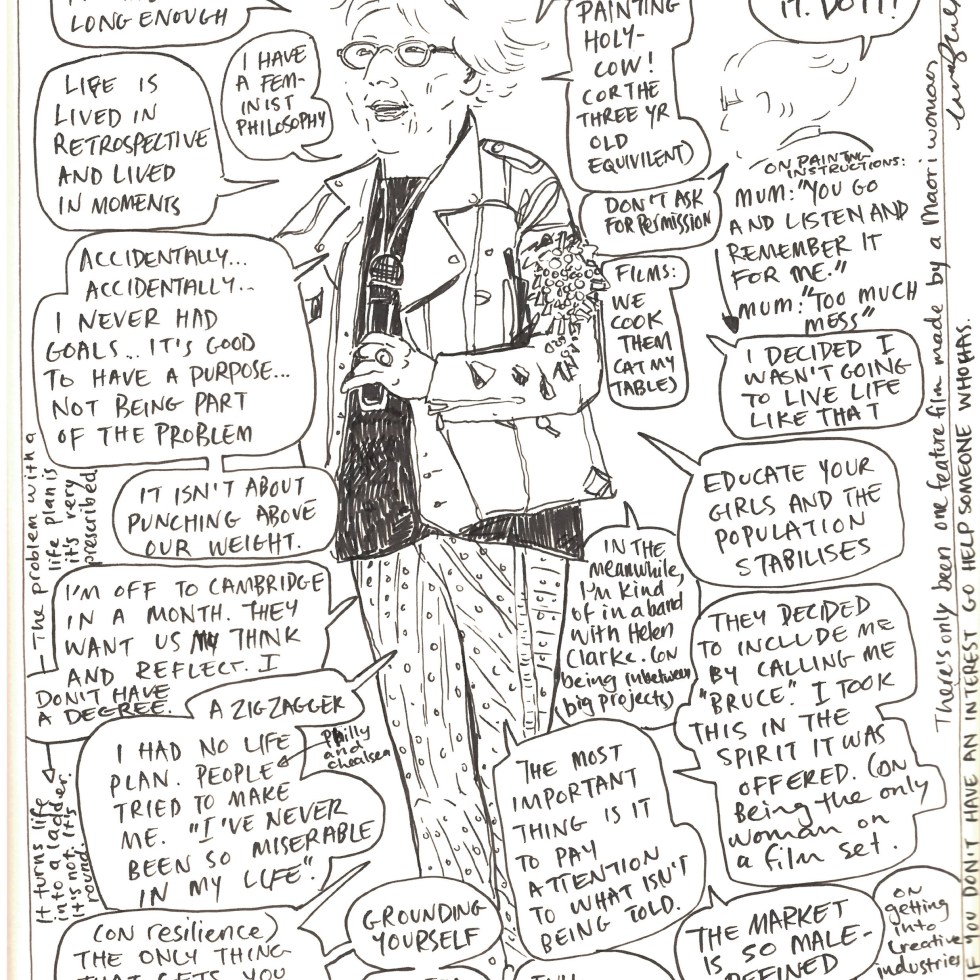 LONG ENOUGH
I HAVE
A FEM-
INIST
PHILOSOPHY
LIFE IS
LIVED IN
RETROSPECTIVE
AND LIVED
IN MOMENTS
PAINTING
HOLY-
COW!
(OR THE
THREE YR
OLD
EQUIVILENT)
IT. DO IT!
ON PAINTING
INSTRUCTIONS:
MUM: "YOU GO
AND LISTEN AND
REMEMBER IT
FOR ME."
MUM: "TOO MUCH
MESS"
DON'T ASK
FOR PERMISSION
ACCIDENTALLY...
ACCIDENTALLY...
I NEVER HAD
GOALS... IT'S GOOD
TO HAVE A PURPOSE...
NOT BEING PART
OF THE PROBLEM
FILMS:
WE
COOK
THEM
(AT MY
TABLE)
I DECIDED I
WASN'T GOING
TO LIVE LIFE
LIKE THAT
IT ISN'T ABOUT
PUNCHING ABOVE
OUR WEIGHT.
EDUCATE YOUR
GIRLS AND THE
POPULATION
STABILISES
The problem with a
life plan is
it's very
prescribed
I'M OFF TO CAMBRIDGE
IN A MONTH. THEY
WANT US THINK
AND REFLECT. I
DON'T HAVE
A DEGREE.
IN THE
meanwhile,
I'm kind
of in a band
with Helen
Clarke. (on
being inbetween
big projects)
THEY DECIDED
TO INCLUDE ME
BY CALLING ME
"BRUCE". I TOOK
THIS IN THE
SPIRIT IT WAS
OFFERED. (ON
Being the only
woman on
a film set.
A ZIGZAGGER
I HAD NO LIFE
PLAN. PEOPLE
TRIED TO MAKE
ME. "I'VE NEVER
BEEN SO MISERABLE
IN MY LIFE".
Philly
and
Chealsea
It turns life
into a ladder.
It's not. It's
round.
THE MOST
IMPORTANT
THING IS IT
TO PAY
ATTENTION
TO WHAT ISN'T
BEING TOLD.
There's only been one feature film made by a Maori woman
YOU DON'T HAVE AN INTEREST (GO HELP SOMEONE WHO HAS.
(ON resilience)
THE ONLY THING
THAT GETS YOU
GROUNDING
YOURSELF
THE MARKET
IS SO MALE-
DEFINED
ON
getting
into
Creative
industries